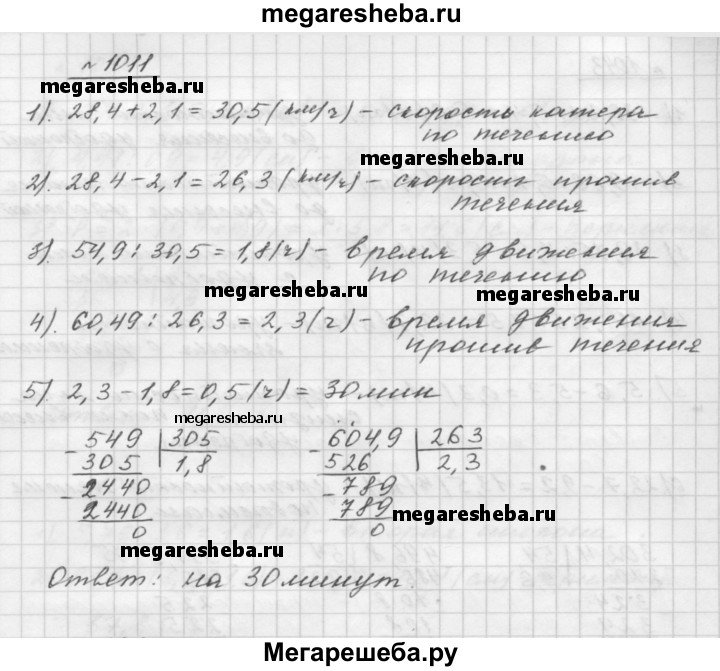 megaresheba.ru
№ 1011
megaresheba.ru
1). 28,4+2,1=30,5(км/ч) - скорость катера
по течению
megaresheba.ru
2). 28,4-2,1=26,3(км/ч) - скорость против
течения
3). 54,9:30,5=1,8(ч) - время движения
по течению
megaresheba.ru
megaresheba.ru
4). 60,49:26,3=2,3(ч) - время движения
против течения
5). 2,3-1,8=0,5(ч)=30мин
megaresheba.ru
- 549 305
305 1,8
- 2440
2440
0
- 604,9 263
526 2,3
- 789
789
0
megaresheba.ru
megaresheba.ru
Ответ: на 30 минут.
Мегарешеба.ру